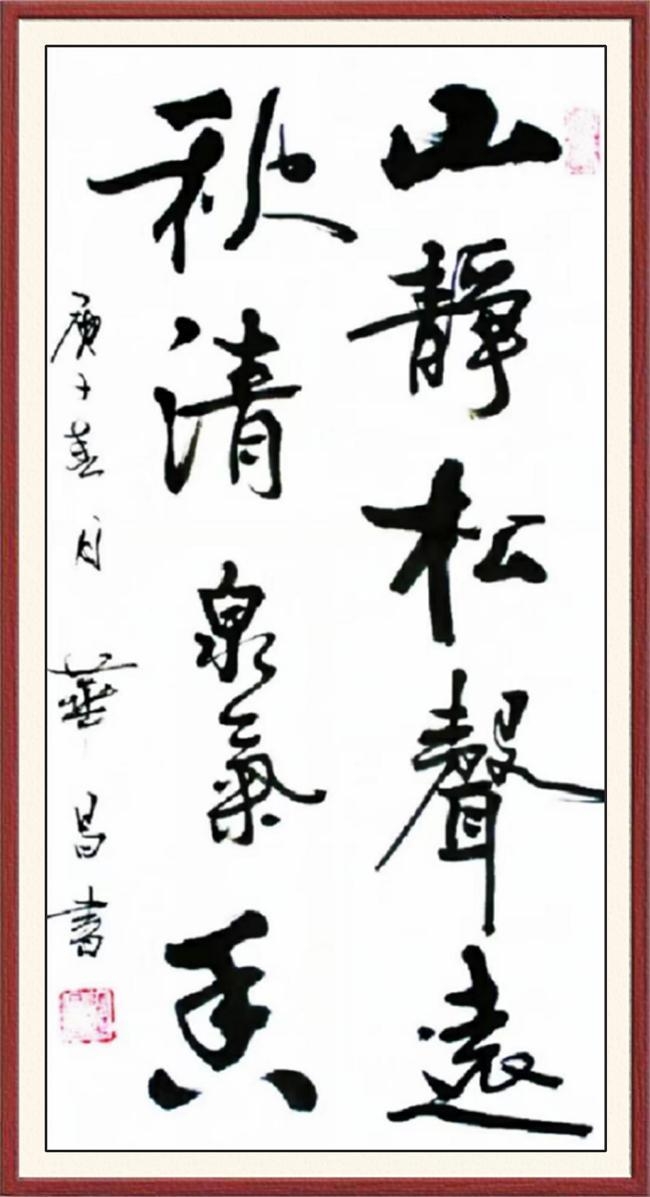 山靜松聲遠
秋清泉氣香
庚子春月 華昌書